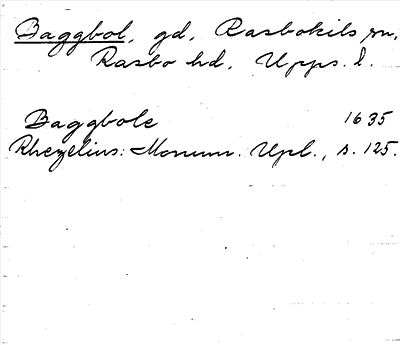 Baggbol, gd, Rasbokils sn,
Rasbo hd, Upps. l.
Baggbole 1635
Rhezelius: Monum. Upl., s. 125.